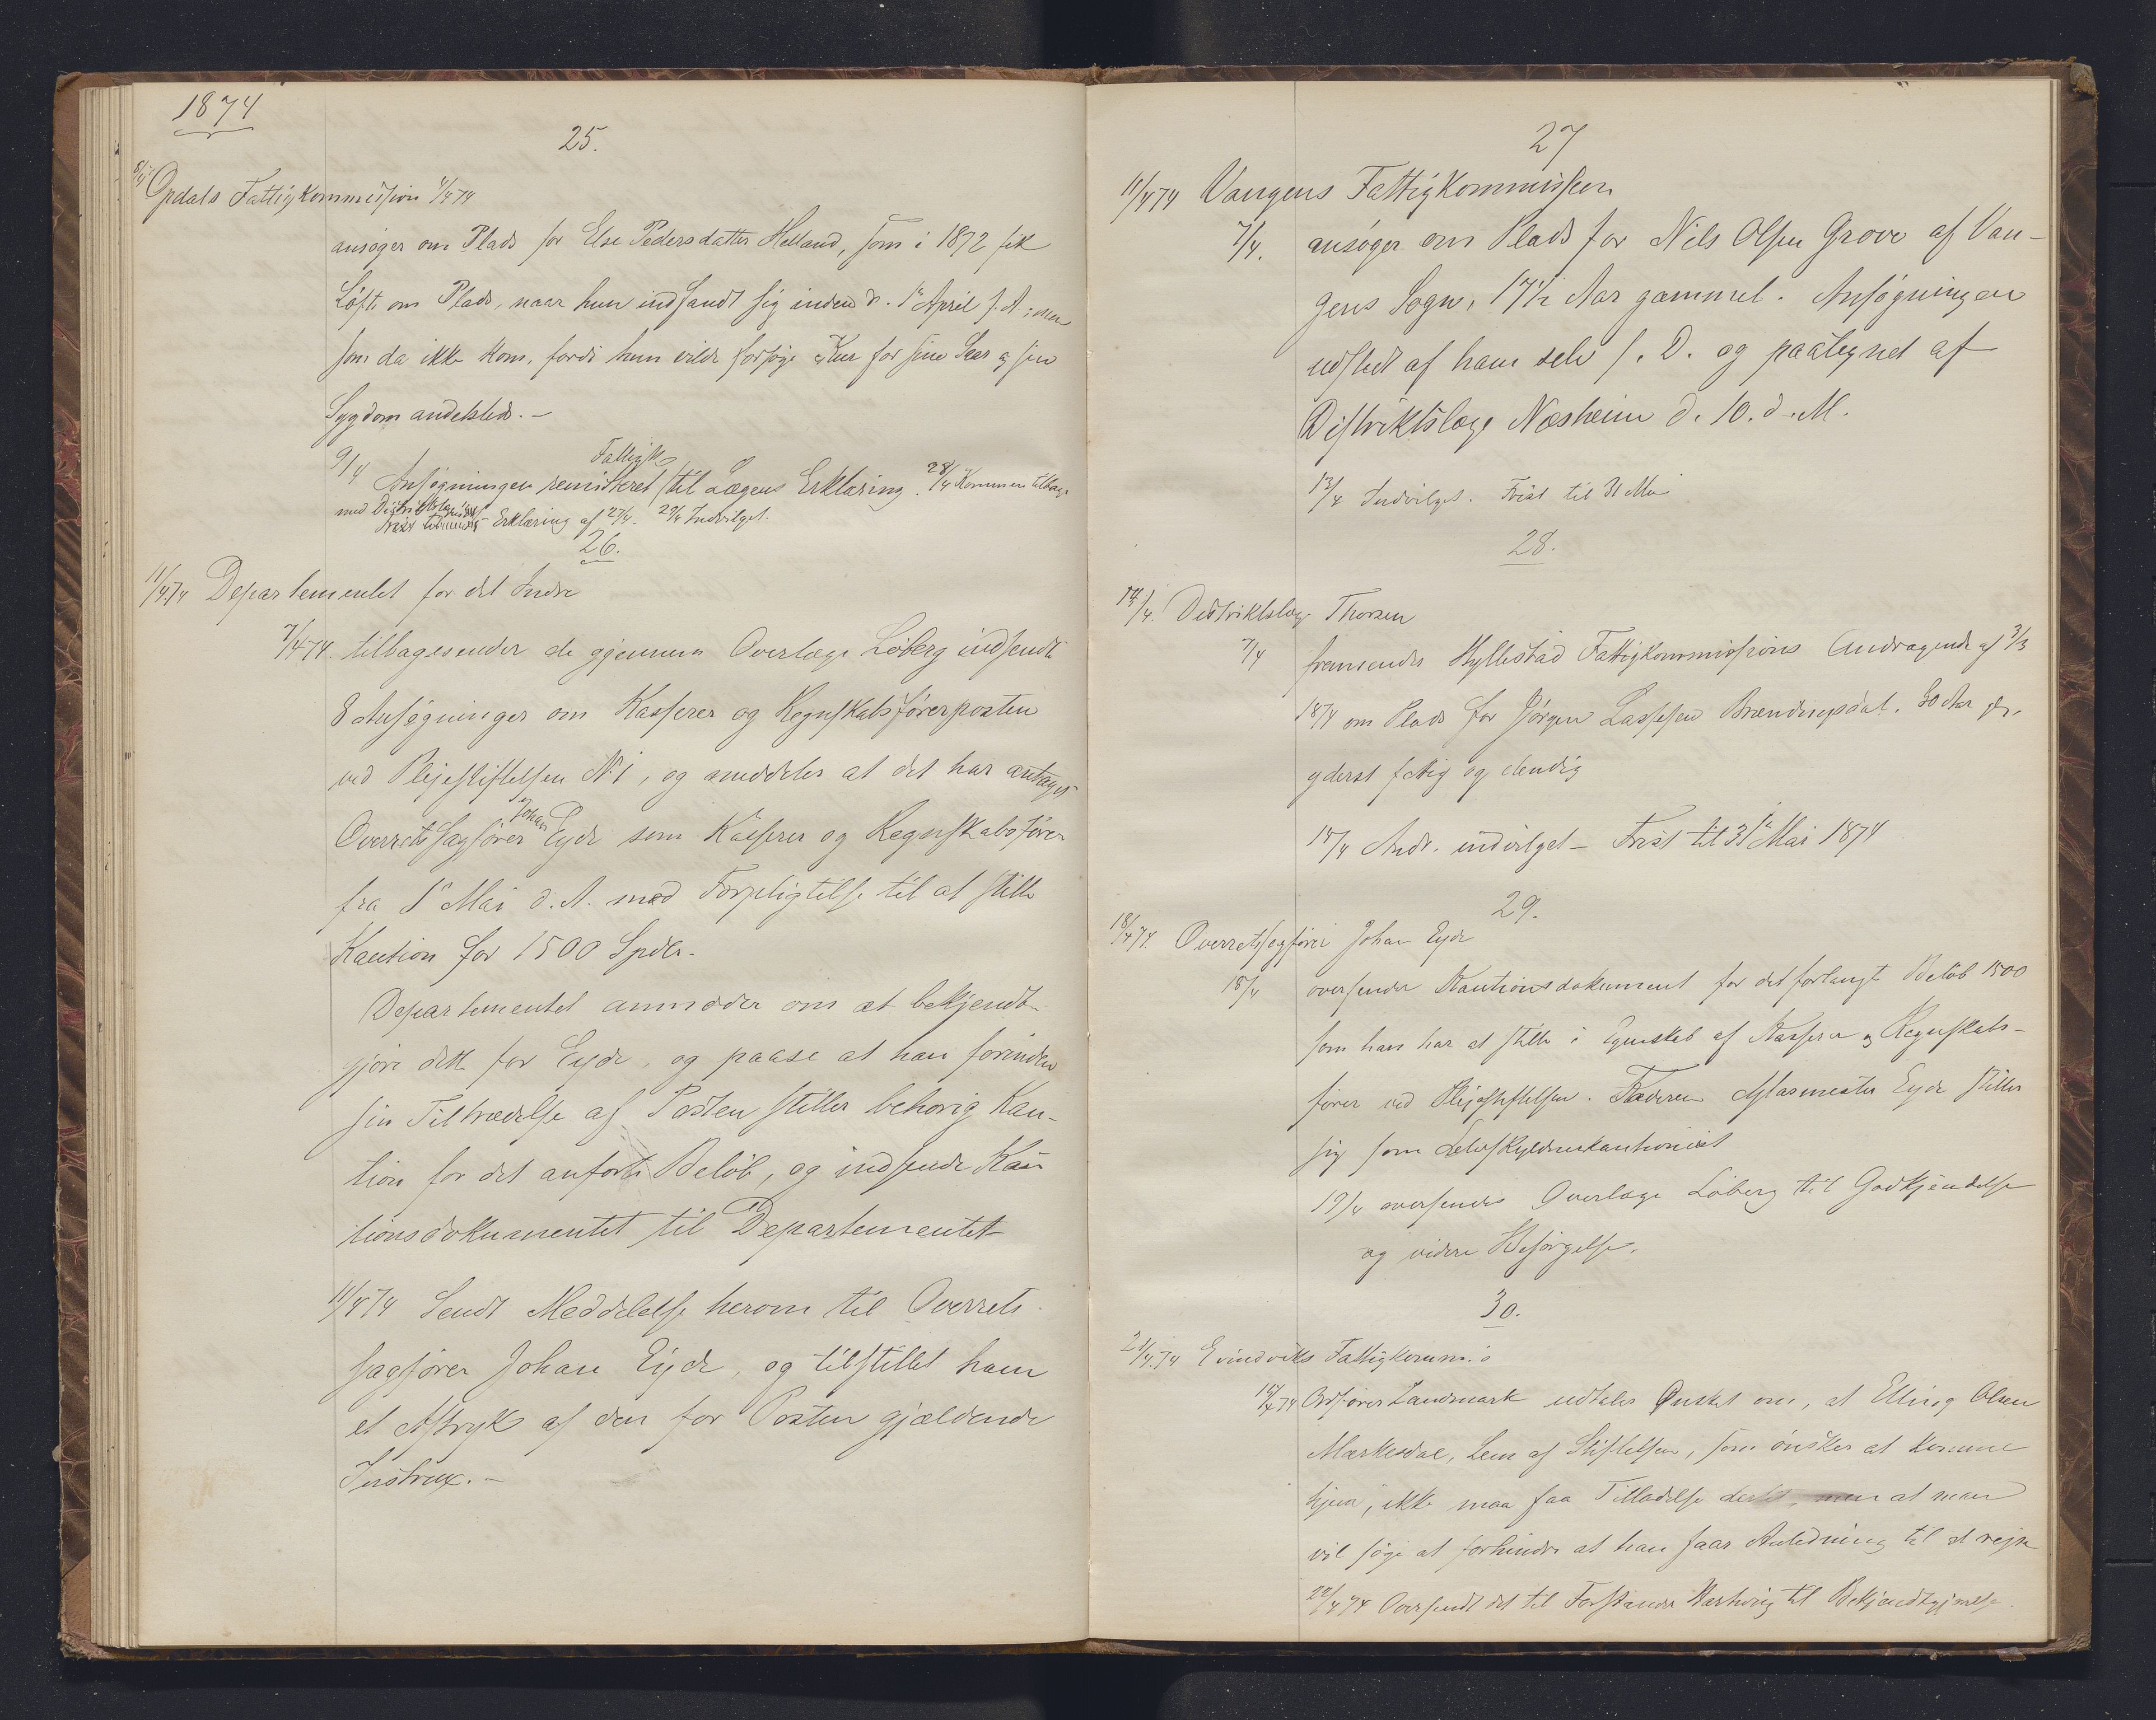 1874
25.
8/4 Opdals Fattigkommission 4/4 74
ansøger om Plads for Else Pedersdatter Helland, som i 1872 fik
Løfte om Plads, naar hun indfandt sig inden d. 1e April s. A.; men
som da ikke kom, fordi hun vilde forsøge Kur for sine Saar og sin
Sygdom andetsteds. –
9/4 Ansøgningen remitteret Fattigk. til Lægens Erklæring. 28/4 Kommen tilbage
med Distriktslægens Erklæring af 27/4. 29/4 Indvilget.
26.
11/4 74 Departementet for det Indre
7/4 74. tilbagesender de gjennem Overlæge Løberg indsendte
8 Ansøgninger om Kasserer og Regnskabsførerposten
ved Plejestiftelsen No 1, og meddeler at det har antaget
Overretssagfører Johan Eyde som Kasserer og Regnskabsfører
fra 1e Mai d. A. med Forpligtelse til at stille
Kaution for 1500 Spdlr.
Departementet anmoder om at bekjendt-
gjøre dette for Eyde, og paase at han forinden
sin Tiltrædelse af Posten stiller behørig Kau-
tion for det anførte Beløb, og indsende Kau-
tionsdokumentet til Departementet
11/4 74 Sendt Meddelelse herom til Overrets-
sagfører Johan Eyde, og tilstillet ham
et Aftryk af den for Posten gjældende
Instrux. –
27
11/4 74 Vangens Fattigkommission
7/4. ansøger om Plads for Nils Olsen Grove af Van-
gens Sogn, 17 1/2 Aar gammel. Ansøgningen
udstedt af ham selv s. D. og paategnet af
Distriktslæge Næsheim d. 10. d. M.
13/4 Indvilget. Frist til 31 Mai
28.
14/4. Distriktslæge Thorsen
7/4 fremsender Hyllestad Fattigkommissions Andragende af 3/3
1874 om Plads for Jørgen Lassesen Brændingsdal. 30 Aar gl.,
yderst fattig og elendig
15/4 Andr. indvilget – Frist til 31e Mai 1874
29.
18/4 74. Overretssagfører Johan Eyde
18/4 oversender Kautionsdokument for det forlangte Beløb 1500
som han har at stille i Egenskab af Kasserer og Regnskabs-
fører ved Plejestiftelsen. Faderen Glasmester Eyde stiller
sig som Selvskyldnerkautionist
19/4 oversendes Overlæge Løberg til Godkjendelse
og videre Besørgelse.
30.
21/4. 74 Evindviks Fattigkomm.
18/4 74 Ordfører Landmark udtaler Ønsket om, at Elling Olsen
Mærkesdal, Lem af Stiftelsen, som ønsker at komme
hjem, ikke maa faa Tilladelse dertil, men at man
vil søge at forhindre at han faar Anledning til at rejse
22/4 74 Oversendt det til Forstander Hartwig til Bekjendtgjørelse.